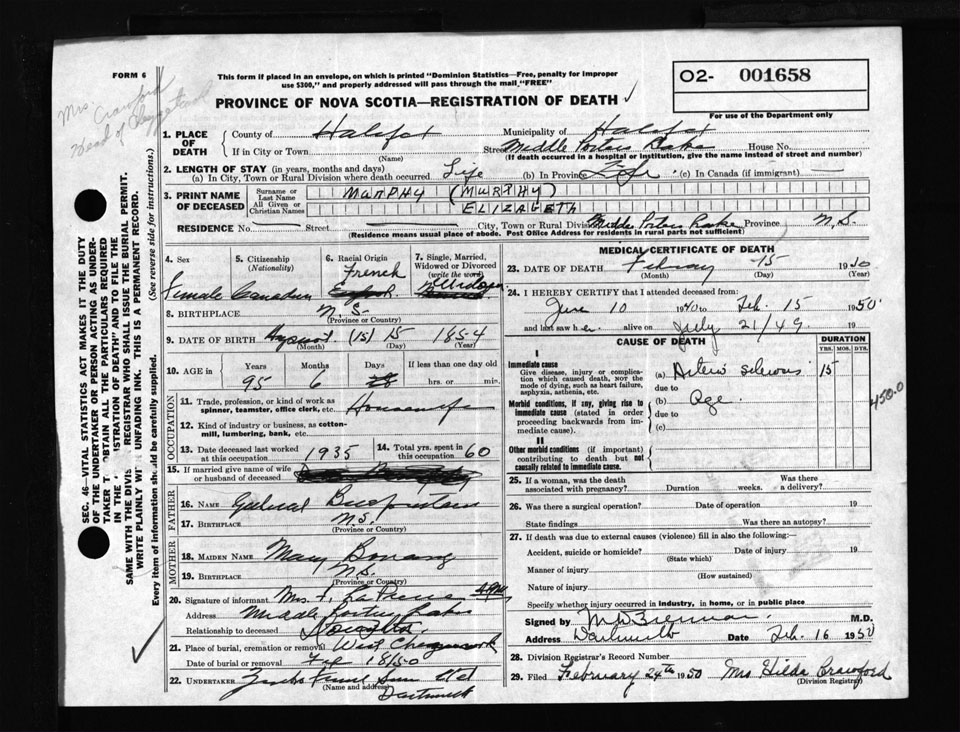 FORM 6
Mrs Crawford
Head of
This form if placed in an envelope, on which is printed "Dominion Statistics—Free, penalty for improper
use $300," and properly addressed will pass through the mail "FREE"
O2- 001658
For use of the Department only
PROVINCE OF NOVA SCOTIA—REGISTRATION OF DEATH ✓
SEC. 46—VITAL STATISTICS ACT MAKES IT THE DUTY
OF THE UNDERTAKER OR PERSON ACTING AS UNDER-
TAKER T OBTAIN ALL THE PARTICULARS REQUIRED
IN THE " STRATION OF DEATH" AND TO FILE THE
SAME WITH THE DIVIS REGISTRAR WHO SHALL ISSUE THE BURIAL PERMIT.
WRITE PLAINLY WI UNFADING INK. THIS IS A PERMANENT RECORD.
Every item of information should be carefully supplied. (See reverse side for instructions.)
1. PLACE OF DEATH County of Halifax Municipality of Halifax
If in City or Town (Name) Street Middle Porters Lake House No.
(If death occurred in a hospital or institution, give the name instead of street and number)
2. LENGTH OF STAY (in years, months and days)
(a) In City, Town or Rural Division where death occurred Life (b) In Province Life (c) In Canada (if immigrant)
3. PRINT NAME OF DECEASED Surname or Last Name MURPHY (MURPHY)
All Given or Christian Names ELIZABETH
RESIDENCE No. Street City, Town or Rural Division Middle Porters Lake Province N.S.
(Residence means usual place of abode. Post Office Address for residents in rural parts not sufficient)
4. Sex Female
5. Citizenship (Nationality) Canadian
6. Racial Origin French
7. Single, Married, Widowed or Divorced (write the word) Widow
8. BIRTHPLACE N.S. (Province or Country)
9. DATE OF BIRTH August (15) 15 1854
(Month) (Day) (Year)
10. AGE in Years Months Days If less than one day old
95 6 hrs. or min.
OCCUPATION
11. Trade, profession or kind of work as spinner, teamster, office clerk, etc. Housewife
12. Kind of industry or business, as cotton-mill, lumbering, bank, etc.
13. Date deceased last worked at this occupation 1935
14. Total yrs. spent in this occupation 60
15. If married give name of wife or husband of deceased
FATHER
16. NAME
17. BIRTHPLACE N.S. (Province or Country)
MOTHER
18. MAIDEN NAME Mary Bonang
19. BIRTHPLACE N.S. (Province or Country)
20. Signature of informant Mrs. F. LaPierre
Address Middle Porters Lake
Relationship to deceased Daughter
21. Place of burial, cremation or removal West Chezzetcook
Date of burial or removal Feb 18/50
22. UNDERTAKER Ltd
(Name and address) Dartmouth
✓
MEDICAL CERTIFICATE OF DEATH
23. DATE OF DEATH February 15 1950
(Month) (Day) (Year)
24. I HEREBY CERTIFY that I attended deceased from:
June 10 1940 to Feb. 15 1950
and last saw her alive on July 21/49 19
CAUSE OF DEATH
DURATION
YRS. MOS. DYS.
I
Immediate cause
Give disease, injury or complication which caused death, NOT the mode of dying, such as heart failure, asphyxia, asthenia, etc.
(a) Arterio sclerosis 15
due to
Morbid conditions, if any, giving rise to immediate cause (stated in order proceeding backwards from immediate cause).
(b) Age
due to
(c)
450-0
II
Other morbid conditions (if important) contributing to death but not causally related to immediate cause.
25. If a woman, was the death associated with pregnancy? Duration weeks. Was there a delivery?
26. Was there a surgical operation? Date of operation 19
State findings Was there an autopsy?
27. If death was due to external causes (violence) fill in also the following:
Accident, suicide or homicide? (State which) Date of injury 19
Manner of injury (How sustained)
Nature of injury
Specify whether injury occurred in industry, in home, or in public place
Signed by M.D.
Address Dartmouth Date Feb. 16 1950
28. Division Registrar's Record Number
29. Filed February 24th 1950 Mrs Hilda Crawford
(Division Registrar)